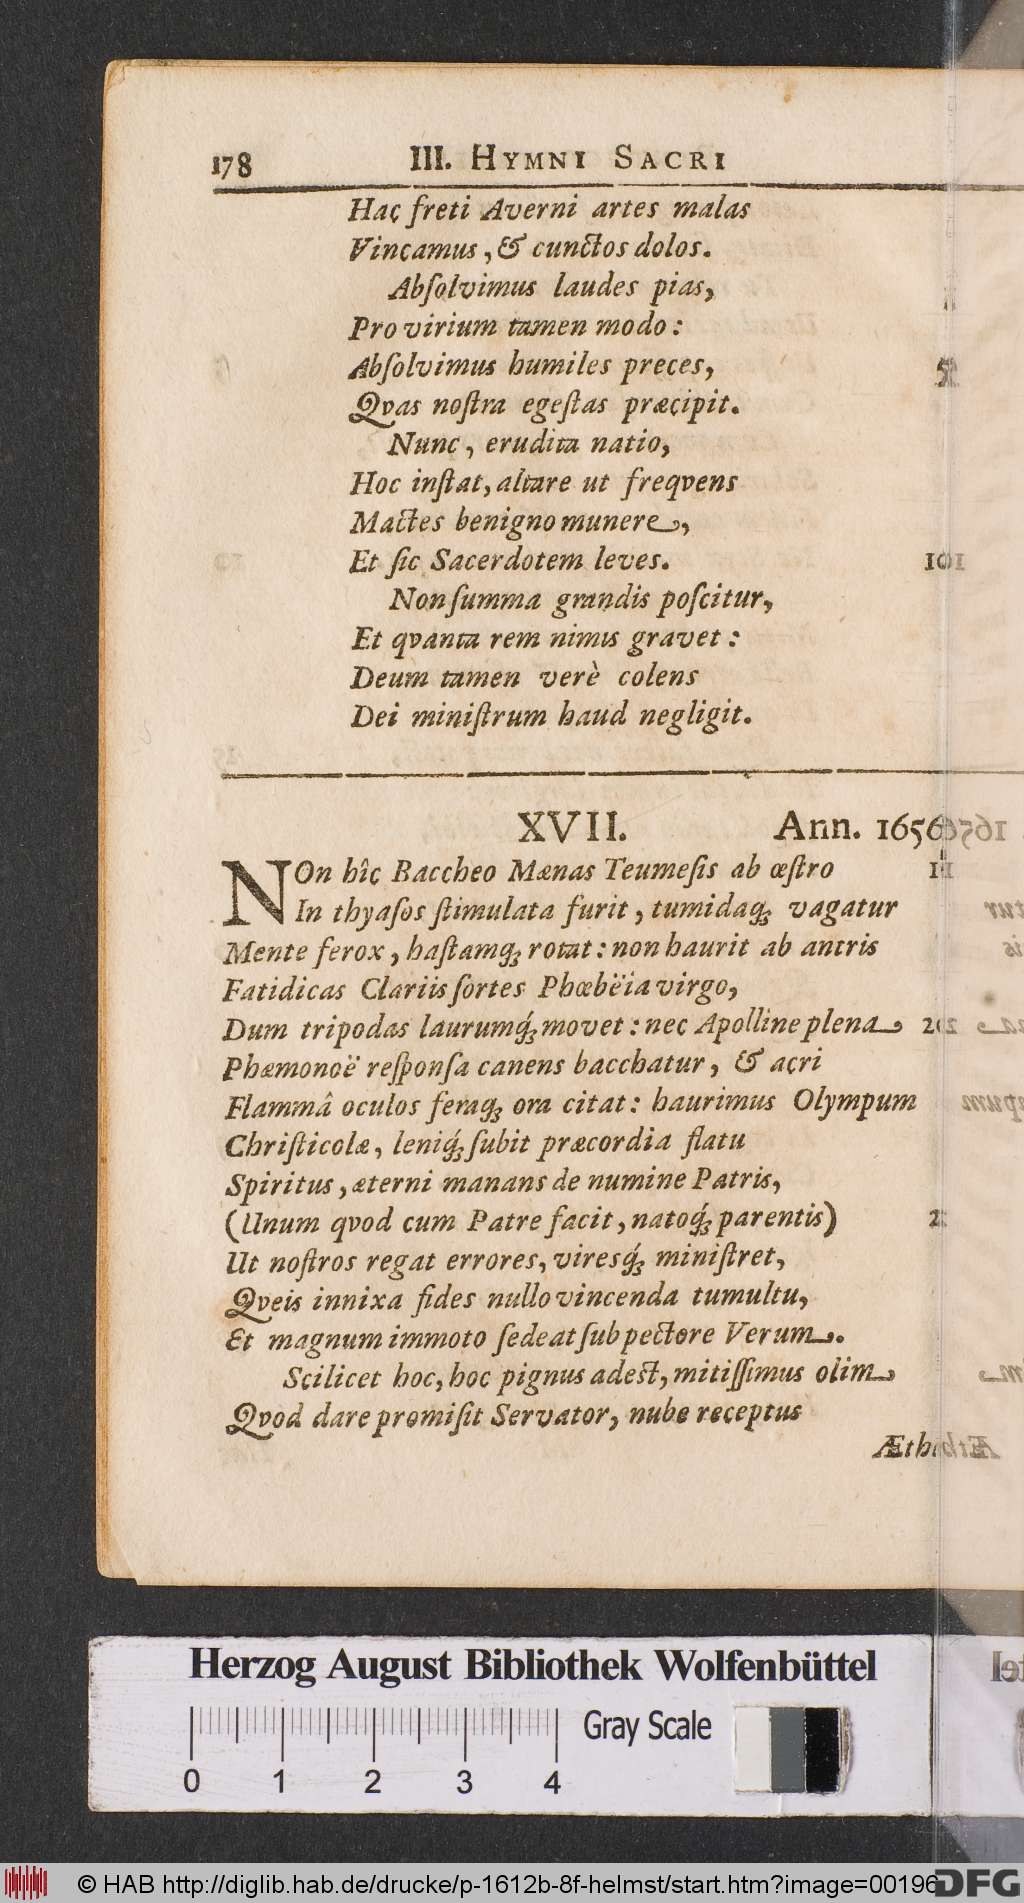 178 III. HYMNI SACRI
Hac freti Averni artes malas
Vincamus, & cunctos dolos.
Abſolvimus laudes pias,
Pro virium tamen modo:
Abſolvimus humiles preces,
Qvas noſtra egeſtas præcipit.
Nunc, erudita natio,
Hoc inſtat, altare ut freqvens
Mactes benigno munere,
Et ſic Sacerdotem leves.
Non ſumma grandis poſcitur,
Et qvanta rem nimis gravet:
Deum tamen verè colens
Dei miniſtrum haud negligit.
XVII. Ann. 1656
NOn hîc Baccheo Mænas Teumeſis ab œſtro
In thyaſos ſtimulata furit, tumidaq; vagatur
Mente ferox, haſtamq; rotat: non haurit ab antris
Fatidicas Clariis ſortes Phœbëia virgo,
Dum tripodas laurumq́; movet: nec Apolline plena
Phæmonoë reſponſa canens bacchatur, & acri
Flammâ oculos feraq; ora citat: haurimus Olympum
Chriſticolæ, leniq́; ſubit præcordia flatu
Spiritus, æterni manans de numine Patris,
(Unum qvod cum Patre facit, natoq́; parentis)
Ut noſtros regat errores, viresq́; miniſtret,
Qveis innixa fides nullo vincenda tumultu,
Et magnum immoto ſedeat ſub pectore Verum.
Scilicet hoc, hoc pignus adeſt, mitiſſimus olim
Qvod dare promiſit Servator, nube receptus
5
10
Herzog August Bibliothek Wolfenbüttel
0 1 2 3 4
Gray Scale
© HAB http://diglib.hab.de/drucke/p-1612b-8f-helmst/start.htm?image=00196
DFG